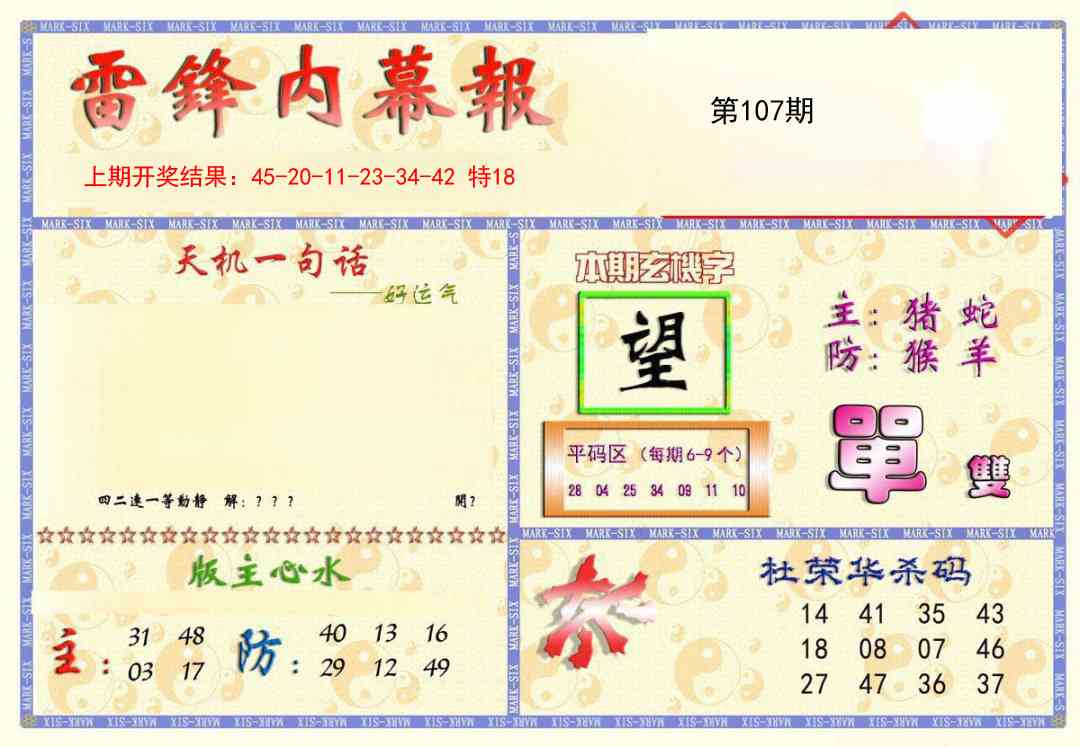 雷鋒内幕報
第107期
上期开奖结果：45-20-11-23-34-42 特18
天机一句话
——好运气
四二連一等動靜 解：？？？ 開？
版主心水
主：
31 48
03 17
防：
40 13 16
29 12 49
本期玄機字
望
主：猪 蛇
防：猴 羊
平码区（每期6-9个）
28 04 25 34 09 11 10
單 雙
杀
杜荣华杀码
14 41 35 43
18 08 07 46
27 47 36 37
MARK-SIX